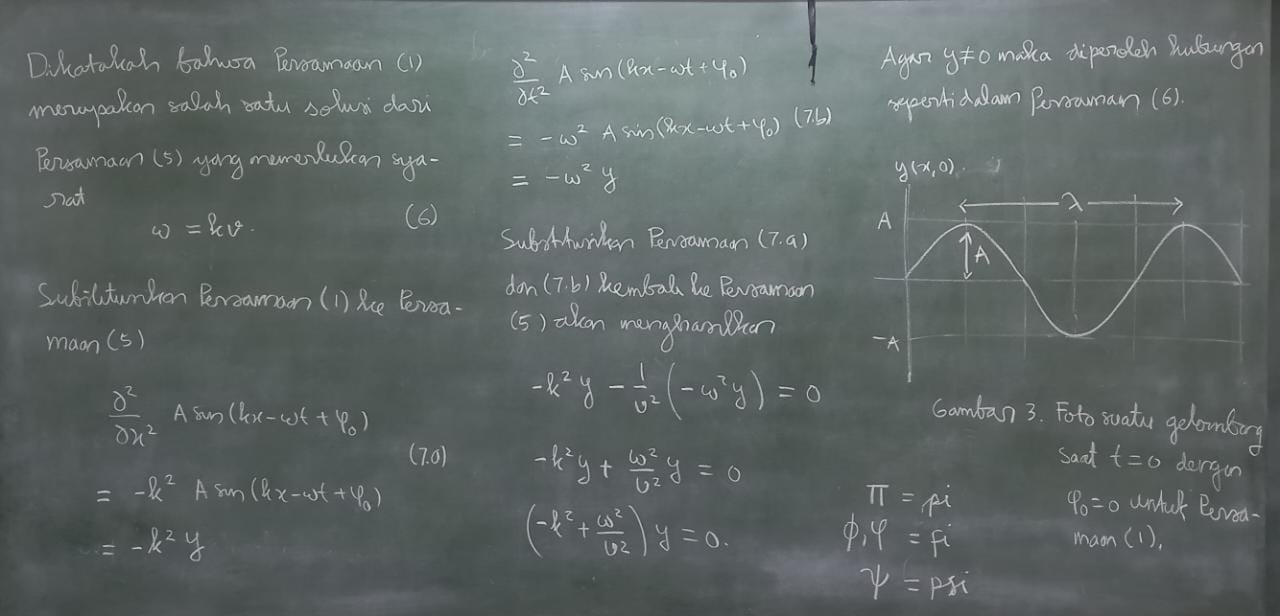 Dikatakah bahwa Persamaan (1)
merupakan salah satu solusi dari
Persamaan (5) yang memerlukan sya-
rat
ω = kv. (6)
Subtitusikan Persamaan (1) ke Persa-
maan (5)
∂²/∂x² A sin(kx-ωt+φ₀)
= -k² A sin(kx-ωt+φ₀) (7.a)
= -k² y
∂²/∂t² A sin(kx-ωt+φ₀)
= -ω² A sin(kx-ωt+φ₀) (7.b)
= -ω² y
Substitusikan Persamaan (7.a)
dan (7.b) kembali ke Persamaan
(5) akan menghasilkan
-k² y - 1/v² (-ω² y) = 0
-k² y + ω²/v² y = 0
(-k² + ω²/v²) y = 0.
Agar y≠0 maka diperoleh hubungan
seperti dalam Persamaan (6).
y(x,0)
λ
A
A
-A
Gambar 3. Foto suatu gelombang
saat t=0 dengan
φ₀=0 untuk Persa-
maan (1).
π = pi
ϕ, φ = fi
ψ = psi